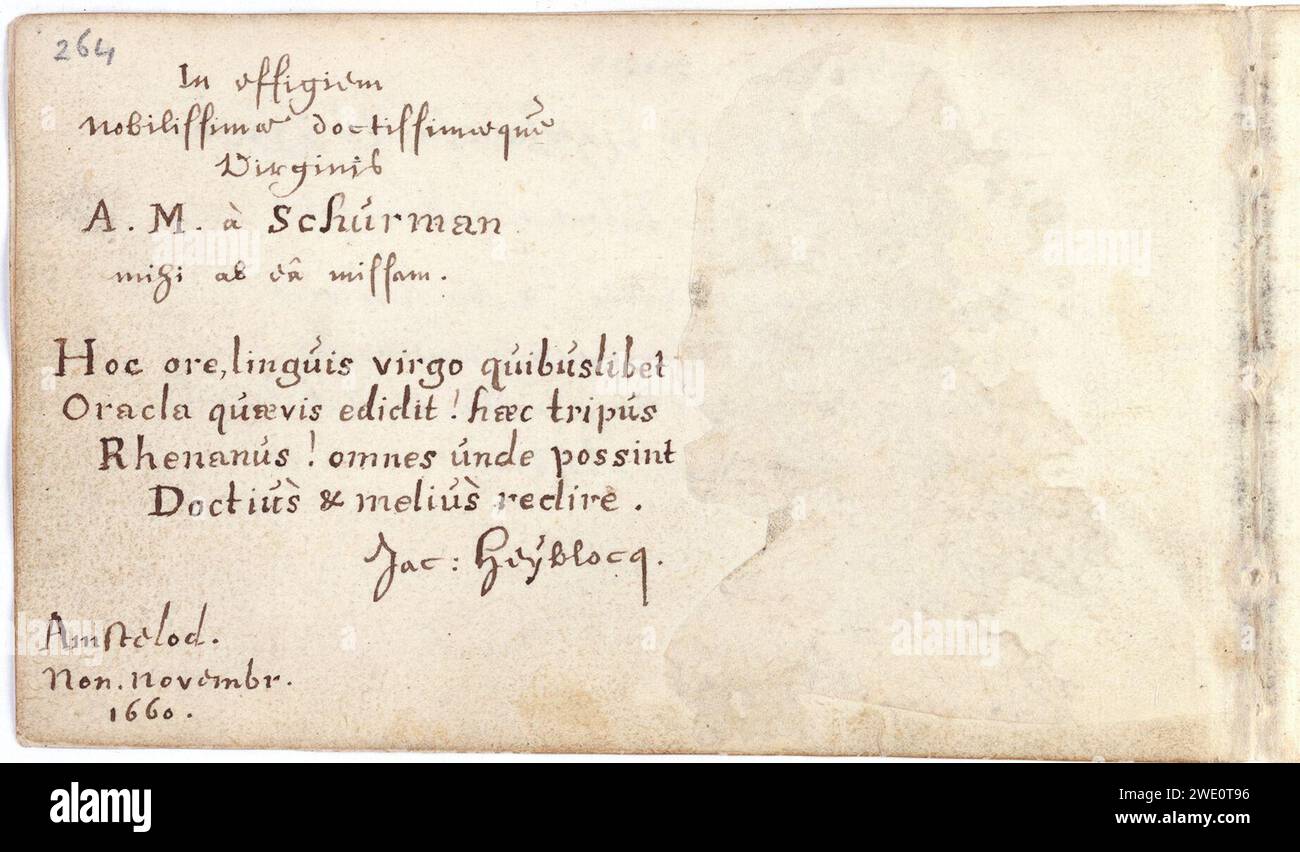 264
In effigiem
nobilissimæ doctissimæque
Virginis
A. M. à Schurman
mihi ab eâ missam.
Hoc ore, linguis virgo quibuslibet
Oracla quævis edidit! hæc tripus
Rhenanus! omnes unde possint
Doctiùs & meliùs redire.
Jac: Heyblocq.
Amstelod.
Non. Novembr.
1660.
alamy
Image ID: 2WE0T96
www.alamy.com